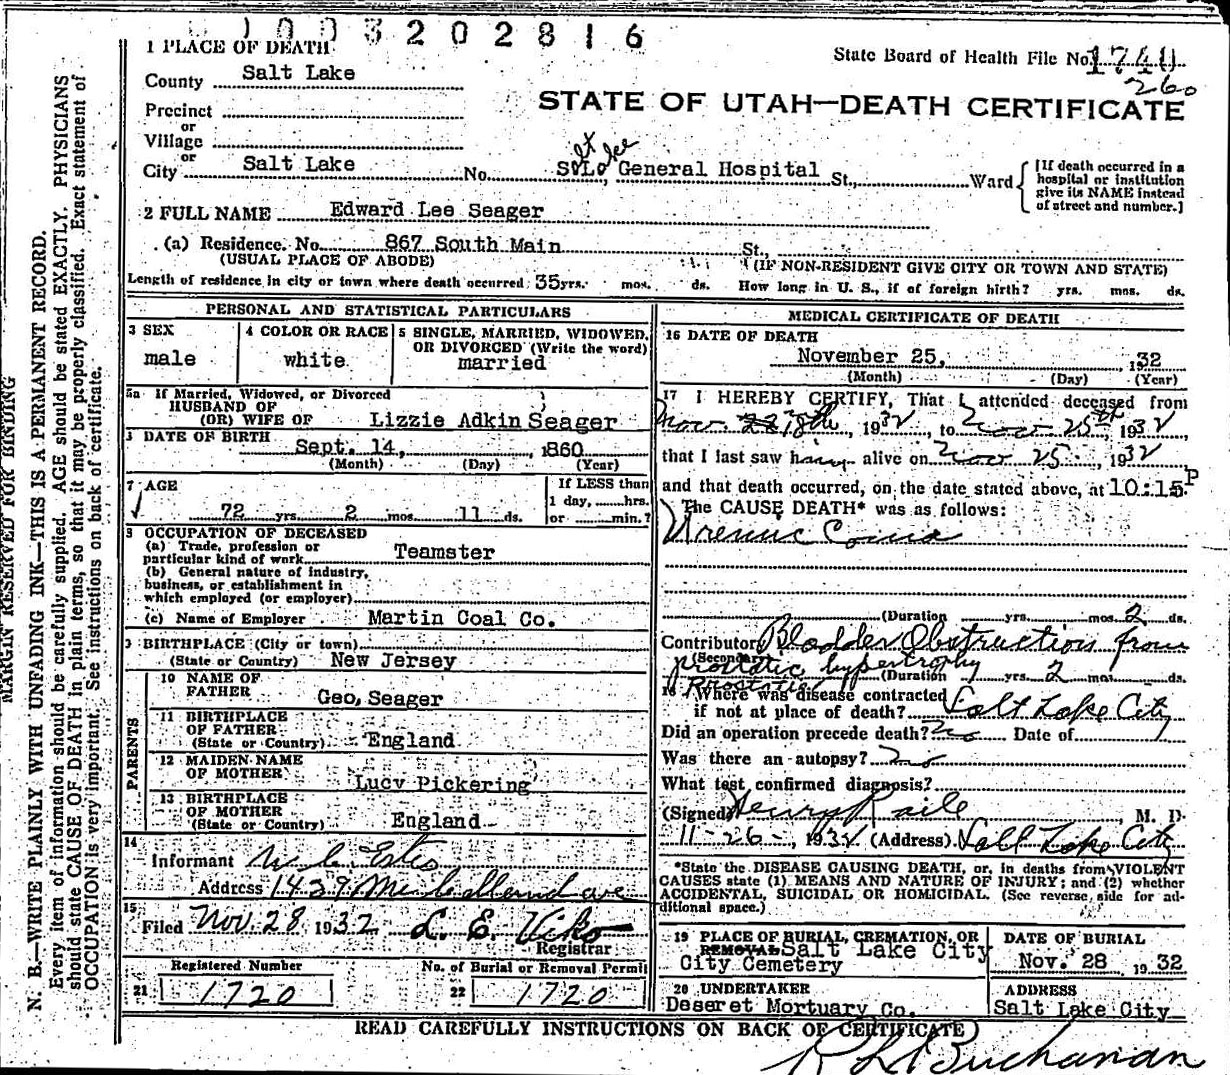 1003202816
State Board of Health File No. 1740
260
STATE OF UTAH—DEATH CERTIFICATE
1 PLACE OF DEATH
County Salt Lake
Precinct
or
Village
or
City Salt Lake No. S.L. General Hospital St., Ward
[If death occurred in a hospital or institution give its NAME instead of street and number.]
2 FULL NAME Edward Lee Seager
(a) Residence. No. 867 South Main St.,
(USUAL PLACE OF ABODE) (IF NON-RESIDENT GIVE CITY OR TOWN AND STATE)
Length of residence in city or town where death occurred 35 yrs. mos. ds. How long in U. S., if of foreign birth? yrs. mos. ds.
PERSONAL AND STATISTICAL PARTICULARS
3 SEX
male
4 COLOR OR RACE
white
5 SINGLE, MARRIED, WIDOWED,
OR DIVORCED (Write the word)
married
5a If Married, Widowed, or Divorced
HUSBAND OF
(OR) WIFE OF Lizzie Adkin Seager
DATE OF BIRTH
Sept. 14, 1860
(Month) (Day) (Year)
7 AGE
72 yrs. 2 mos. 11 ds.
If LESS than
1 day, hrs.
or min.?
OCCUPATION OF DECEASED
(a) Trade, profession or
particular kind of work Teamster
(b) General nature of industry,
business, or establishment in
which employed (or employer)
(c) Name of Employer Martin Coal Co.
BIRTHPLACE (City or town)
(State or Country) New Jersey
PARENTS
10 NAME OF
FATHER Geo, Seager
11 BIRTHPLACE
OF FATHER
(State or Country) England
12 MAIDEN NAME
OF MOTHER Lucy Pickering
13 BIRTHPLACE
OF MOTHER
(State or Country) England
14
Informant W C Estes
Address 1439 ave
15
Filed Nov. 28 1932 L. E. Viko
Registrar
Registered Number
21 1720
No. of Burial or Removal Permit
22 1720
MEDICAL CERTIFICATE OF DEATH
16 DATE OF DEATH
November 25, 1932
(Month) (Day) (Year)
17 I HEREBY CERTIFY, That I attended deceased from
Nov 18th, 1932, to Nov 25th 1932
that I last saw him alive on Nov 25, 1932
and that death occurred, on the date stated above, at 10:15 P
The CAUSE DEATH* was as follows:
Uremic Coma
(Duration yrs. mos. 2 ds.
Contributory Bladder Obstruction from
(Secondary
prostatic hypertrophy (Duration yrs. 2 mos. ds.
Where was disease contracted
if not at place of death? Salt Lake City
Did an operation precede death? No Date of
Was there an autopsy? No
What test confirmed diagnosis?
(Signed) Henry Raile, M. D.
11-26-, 1932 (Address) Salt Lake City
*State the DISEASE CAUSING DEATH, or, in deaths from VIOLENT
CAUSES state (1) MEANS AND NATURE OF INJURY; and (2) whether
ACCIDENTAL, SUICIDAL OR HOMICIDAL. (See reverse side for ad-
ditional space.)
19 PLACE OF BURIAL, CREMATION, OR
REMOVAL Salt Lake City
City Cemetery
DATE OF BURIAL
Nov. 28 1932
20 UNDERTAKER
Deseret Mortuary Co.
ADDRESS
Salt Lake City
READ CAREFULLY INSTRUCTIONS ON BACK OF CERTIFICATE
Buchanan
MARGIN RESERVED FOR BINDING
N. B.—WRITE PLAINLY WITH UNFADING INK—THIS IS A PERMANENT RECORD.
Every item of information should be carefully supplied. AGE should be stated EXACTLY. PHYSICIANS
should state CAUSE OF DEATH in plain terms, so that it may be properly classified. Exact statement of
OCCUPATION is very important. See instructions on back of certificate.